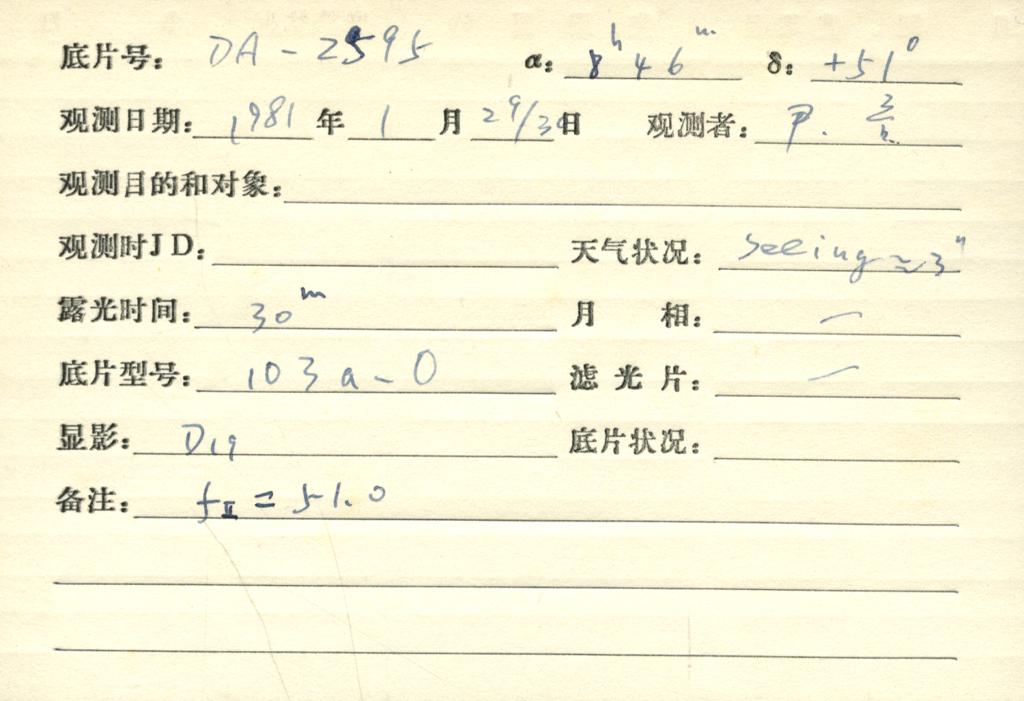 底片号: DA-2595 α: 8h 46m δ: +51°
观测日期: 1981 年 1 月 29/30 日 观测者: P.
观测目的和对象:
观测时JD: 天气状况: Seeing ≈ 3"
露光时间: 30m 月 相: —
底片型号: 103a-O 滤光片: —
显影: D19 底片状况:
备注: fII = 51.0